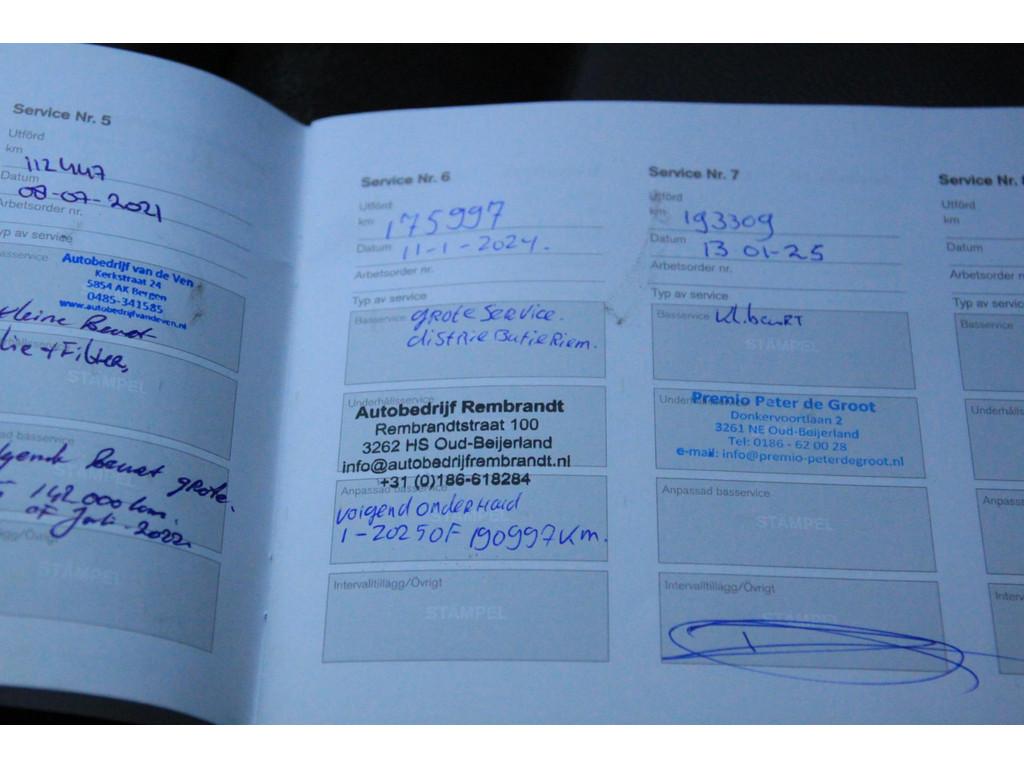 Service Nr. 5
Utförd
km
112447
Datum
08-07-2021
Arbetsorder nr.
yp av service
asservice
Autobedrijf van de Ven
Kerkstraat 24
5854 AK Bergen
0485-341585
www.autobedrijfvandeven.nl
kleine Beurt
lie + Filter,
STÄMPEL
sad basservice
lgende Beurt grote.
142.000 km.
of Juli-2022
ngg/Övrigt
STÄMPEL
Service Nr. 6
Utförd
km
175997
Datum
11-1-2024.
Arbetsorder nr.
Typ av service
Basservice
grote Service.
distrieButieRiem.
Underhållsservice
Autobedrijf Rembrandt
Rembrandtstraat 100
3262 HS Oud-Beijerland
info@autobedrijfrembrandt.nl
+31 (0)186-618284
Anpassad basservice
volgend onderHoud
1-2025 OF 190997 Km.
Intervalltillägg/Övrigt
STÄMPEL
Service Nr. 7
Utförd
km
193309
Datum
13 01-25
Arbetsorder nr.
Typ av service
Basservice
kl.beurt
STÄMPEL
Underhållsservice
Premio Peter de Groot
Donkervoortlaan 2
3261 NE Oud-Beijerland
Tel: 0186 - 62 00 28
e-mail: info@premio-peterdegroot.nl
Anpassad basservice
STÄMPEL
Intervalltillägg/Övrigt
STÄMPEL
Service Nr. 8
Utförd
km
Datum
Arbetsorder nr
Typ av servic
Basservice
Underhålls
Anpassa
Interv